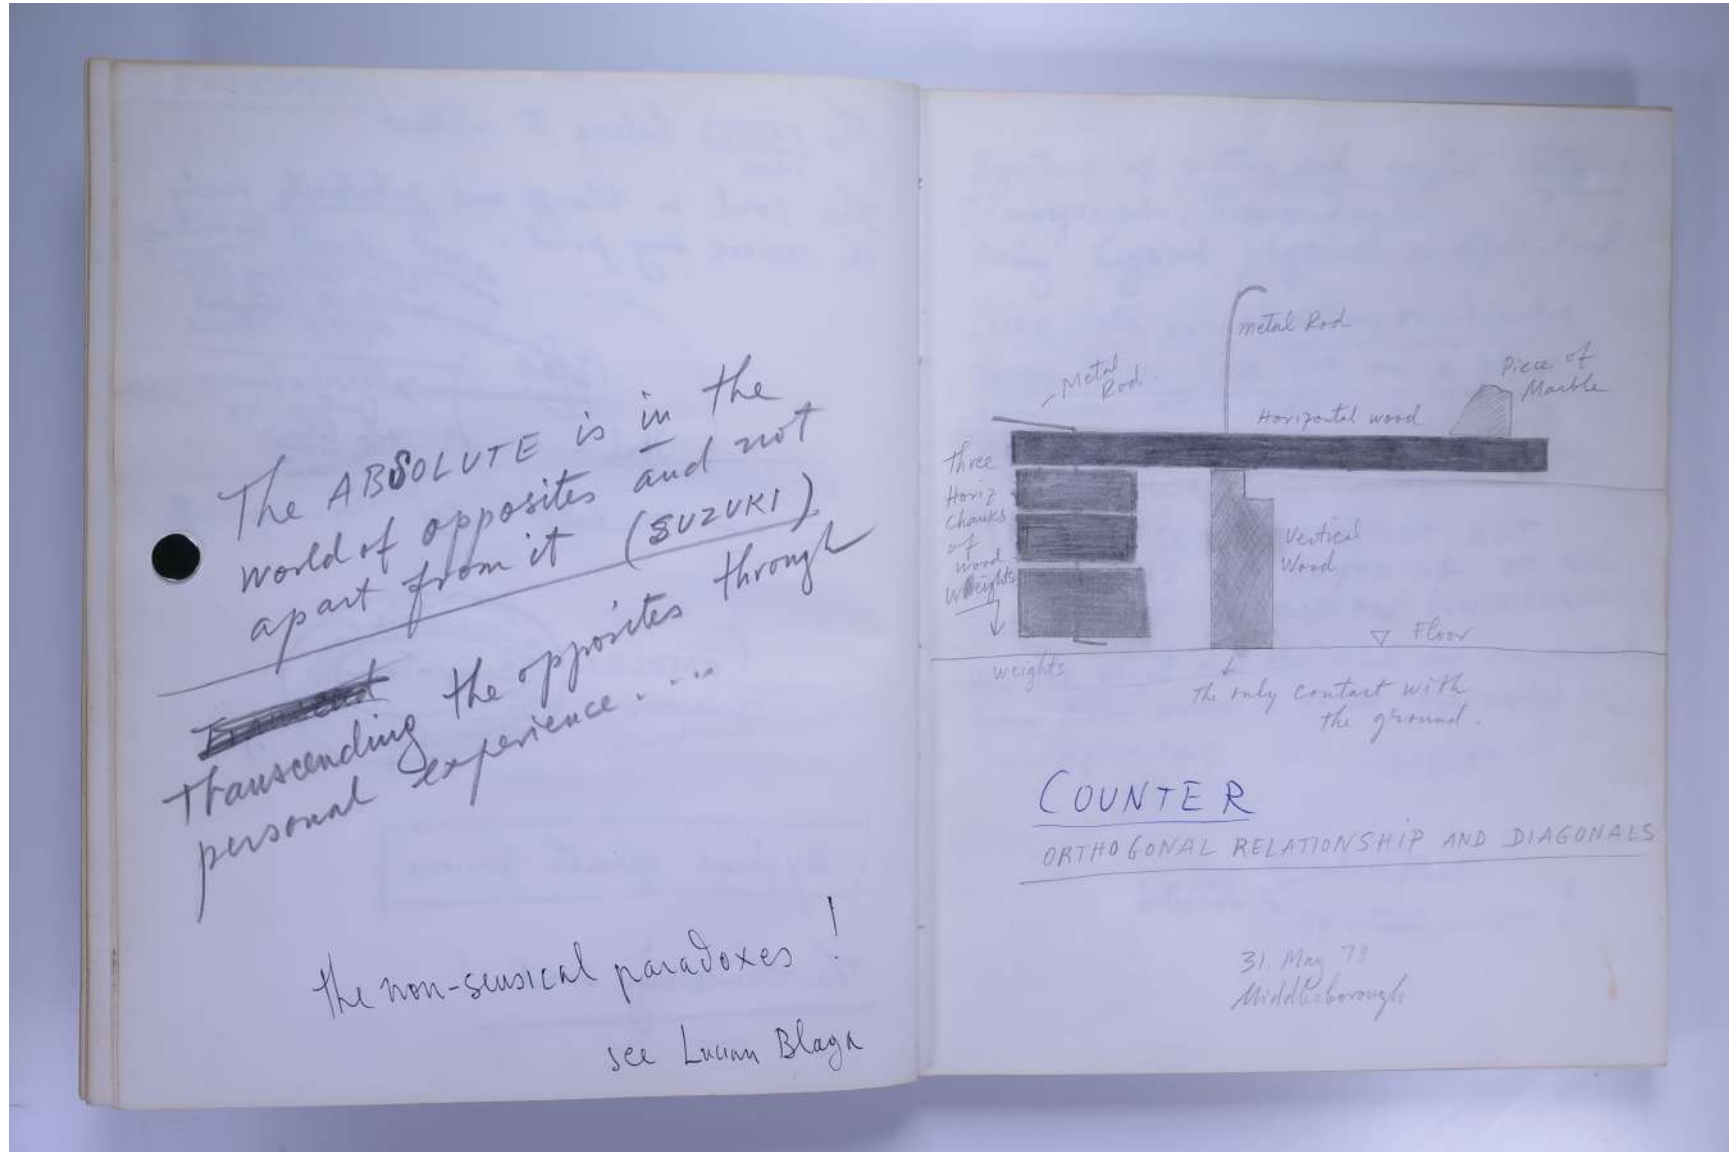 The ABSOLUTE is in the
world of opposites and not
apart from it (SUZUKI)
Transcending the opposites through
personal experience....
the non-sensical paradoxes!
see Lucian Blaga
metal Rod
Metal
Rod
Piece of
Marble
Horizontal wood
Three
Horiz
Chunks
of
wood
Weights
Vertical
Wood
Floor
weights
The only contact with
the ground.
COUNTER
ORTHOGONAL RELATIONSHIP AND DIAGONALS
31. May 79
Middlesborough